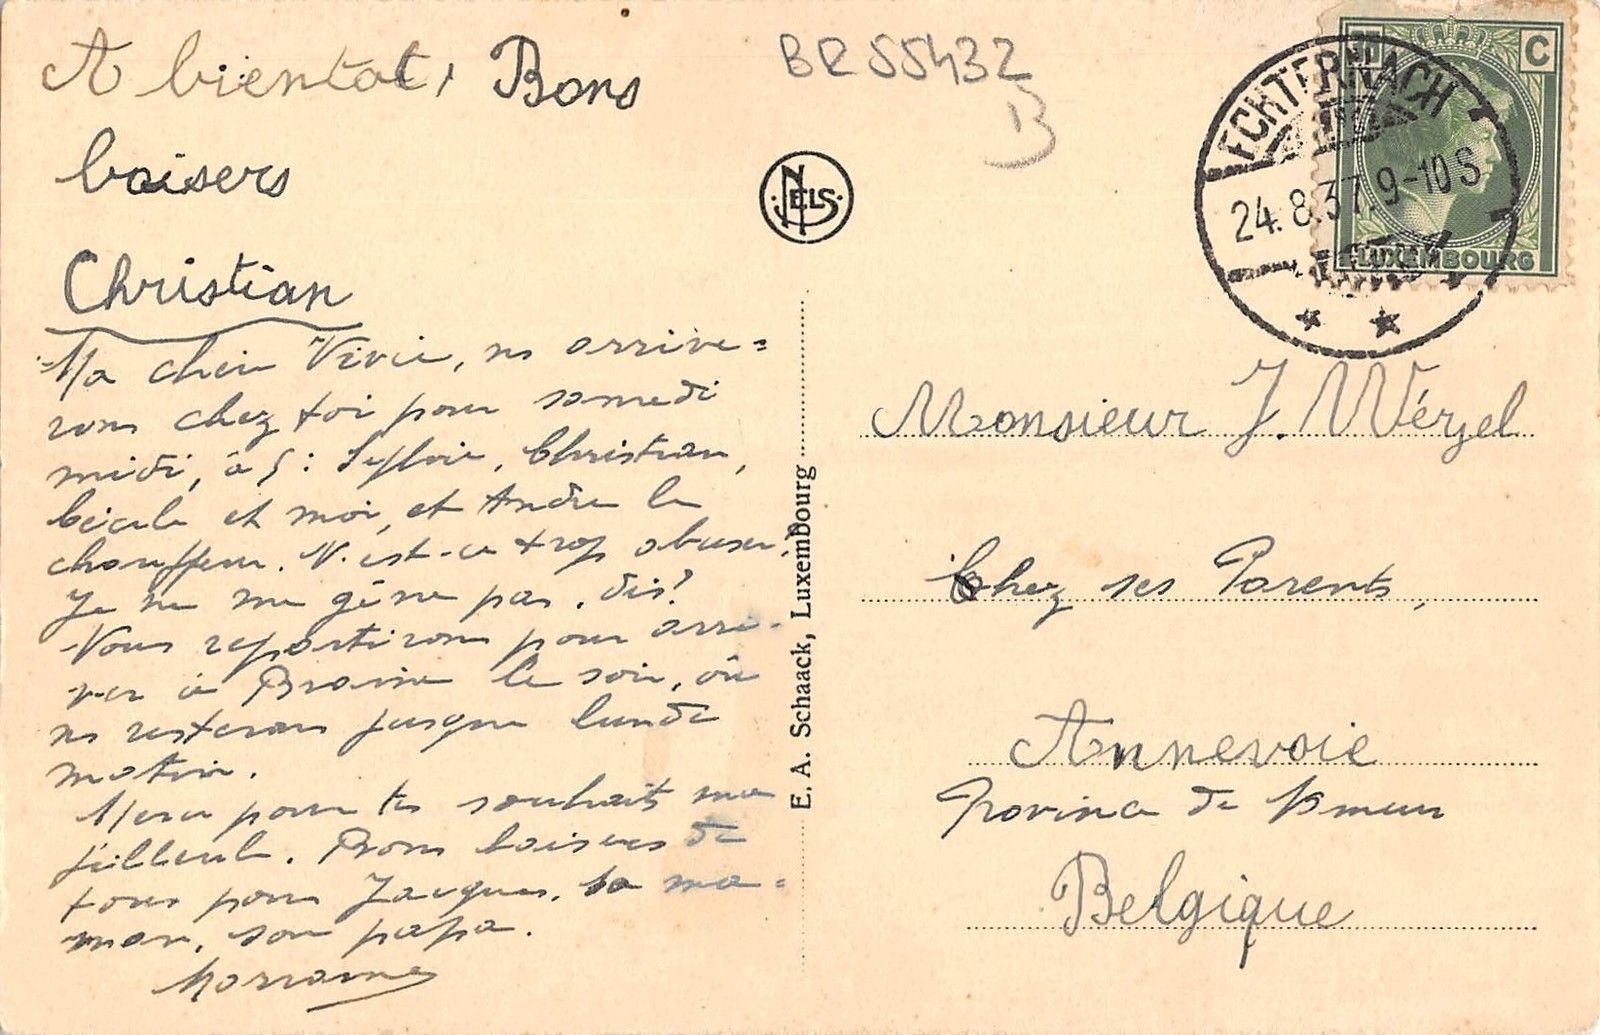 A bientot, Bons
baisers
Christian
Ma chère Vivie, ns arrive=
rons chez toi pour samedi
midi, à 5 : Sylvie, Christian,
et moi, et André le
chauffeur. N'est-ce trop abuser?
Je ne me gêne pas, dis?
Nous repartirons pour arri-
ver à Braine le soir, où
ns resterons jusque lundi
matin.
Merci pour tes souhaits ma
filleule. Bons baisers de
tous pour Jacques, sa ma=
man, son papa.
BR55432
B
NELS
E. A. Schaack, Luxembourg
C
LUXEMBOURG
ECHTERNACH
24.8.37.9-10S
Monsieur J. Wérzel
Chez ses Parents,
Annevoie
Province de Namur
Belgique